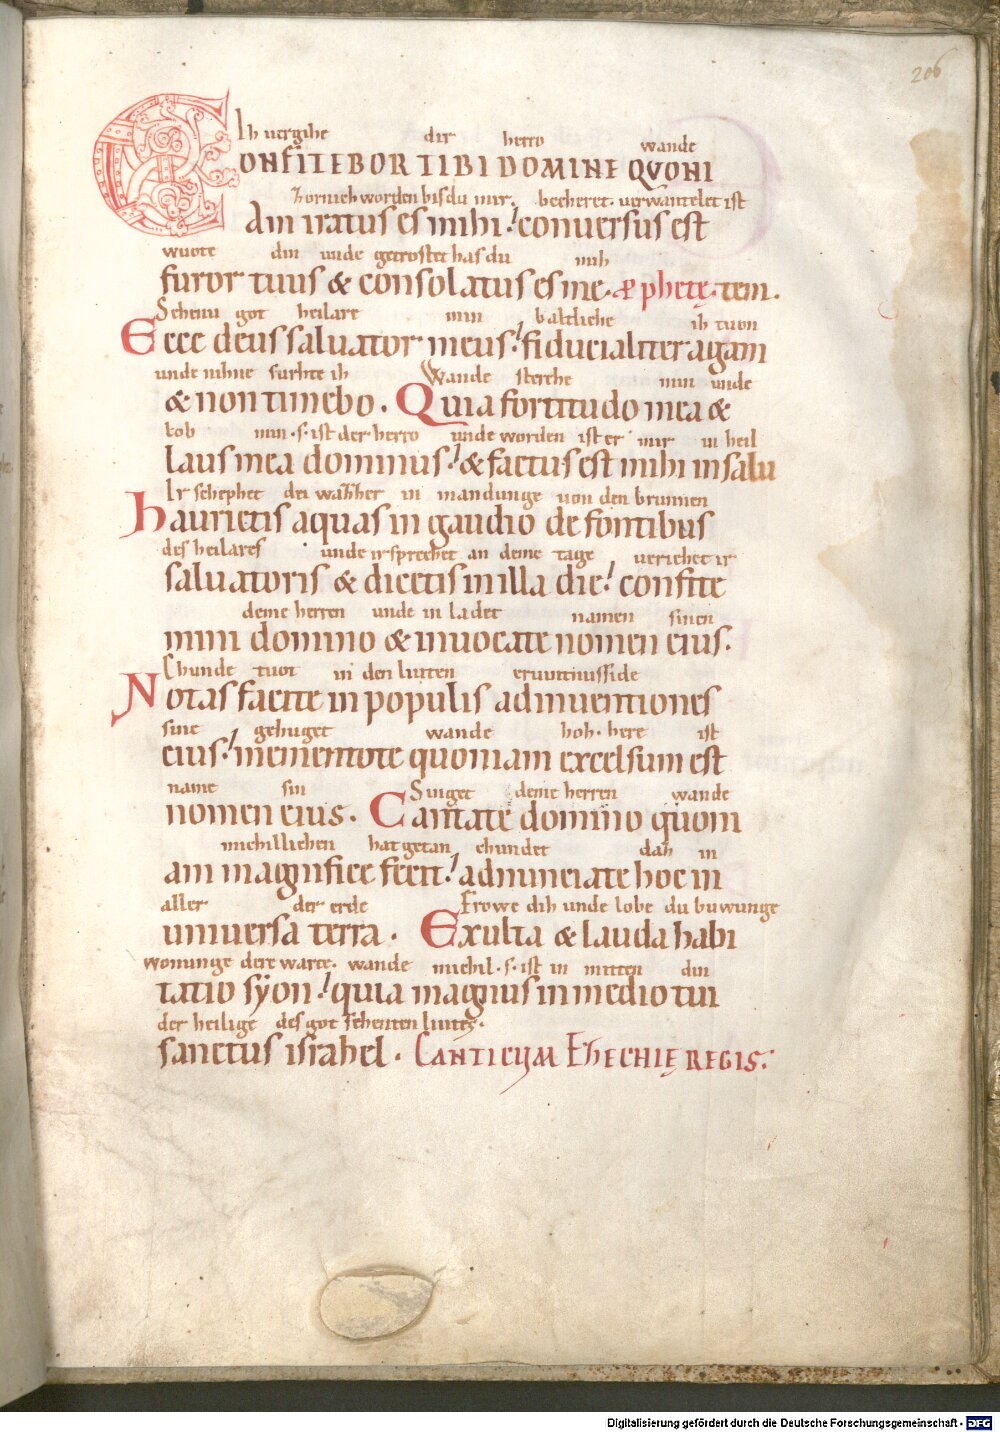 206
Ih uergihe dir herro wande
CONFITEBOR TIBI DOMINE QVONI
zornich worden bisdu mir. becheret. uerwantelet ist
am iratus es mihi. conuersus est
wuote din unde getrostet hasdu mih
furor tuus & consolatus es me. ę phetę. tem.
Sehenu got heilare min baltliche ih tuon
Ecce deus saluator meus. fiducialiter agam
unde nihne furhte ih Wande sterche min unde
& non timebo. Quia fortitudo mea &
lob min .s. ist der herro unde worden ist er mir in heil
laus mea dominus. & factus est mihi in salu
Ir schephet dei wazzer in mandunge uon den brunnen
haurietis aquas in gaudio de fontibus
des heilares unde ir sprechet an deme tage ueriehet ir
saluatoris & dicetis in illa die. confite
deme herren unde in ladet namen sinen
mini domino & inuocate nomen eius.
Chunde tuot in den liuten
Notas facite in populis adinuentiones
sine gehuget wande hoh. here ist
eius. mementote quoniam excelsum est
name sin Singet deme herren wande
nomen eius. Cantate domino quoni
michillichen hat getan chundet daz in
am magnifice fecit. adnunciate hoc in
aller der erde Frowe dih unde lobe du buwunge
uniuersa terra. Exulta & lauda habi
wonunge dere warte. wande michil .s. ist in mitten din
tatio syon. quia magnus in medio tui
der heilige des got sehenten liutes.
sanctus israhel. CANTICUM EZECHIĘ REGIS.
Digitalisierung gefördert durch die Deutsche Forschungsgemeinschaft - DFG